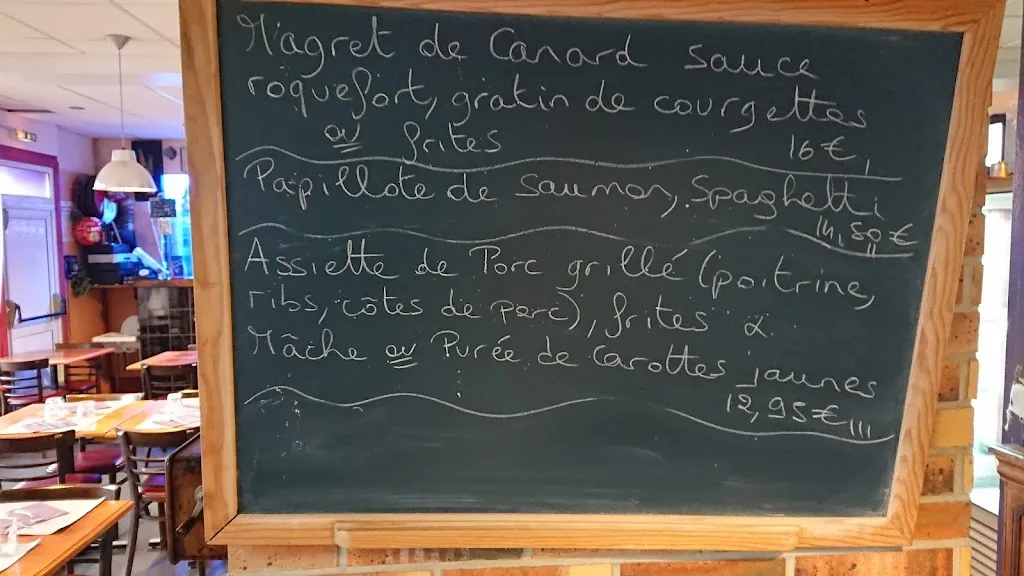 Magret de Canard sauce
roquefort, gratin de courgettes
ou frites 16€
Papillote de saumon, Spaghetti
14,50€
Assiette de Porc grillé (poitrine,
ribs, côtes de porc), frites &
Mâche ou Purée de Carottes jaunes
12,95€